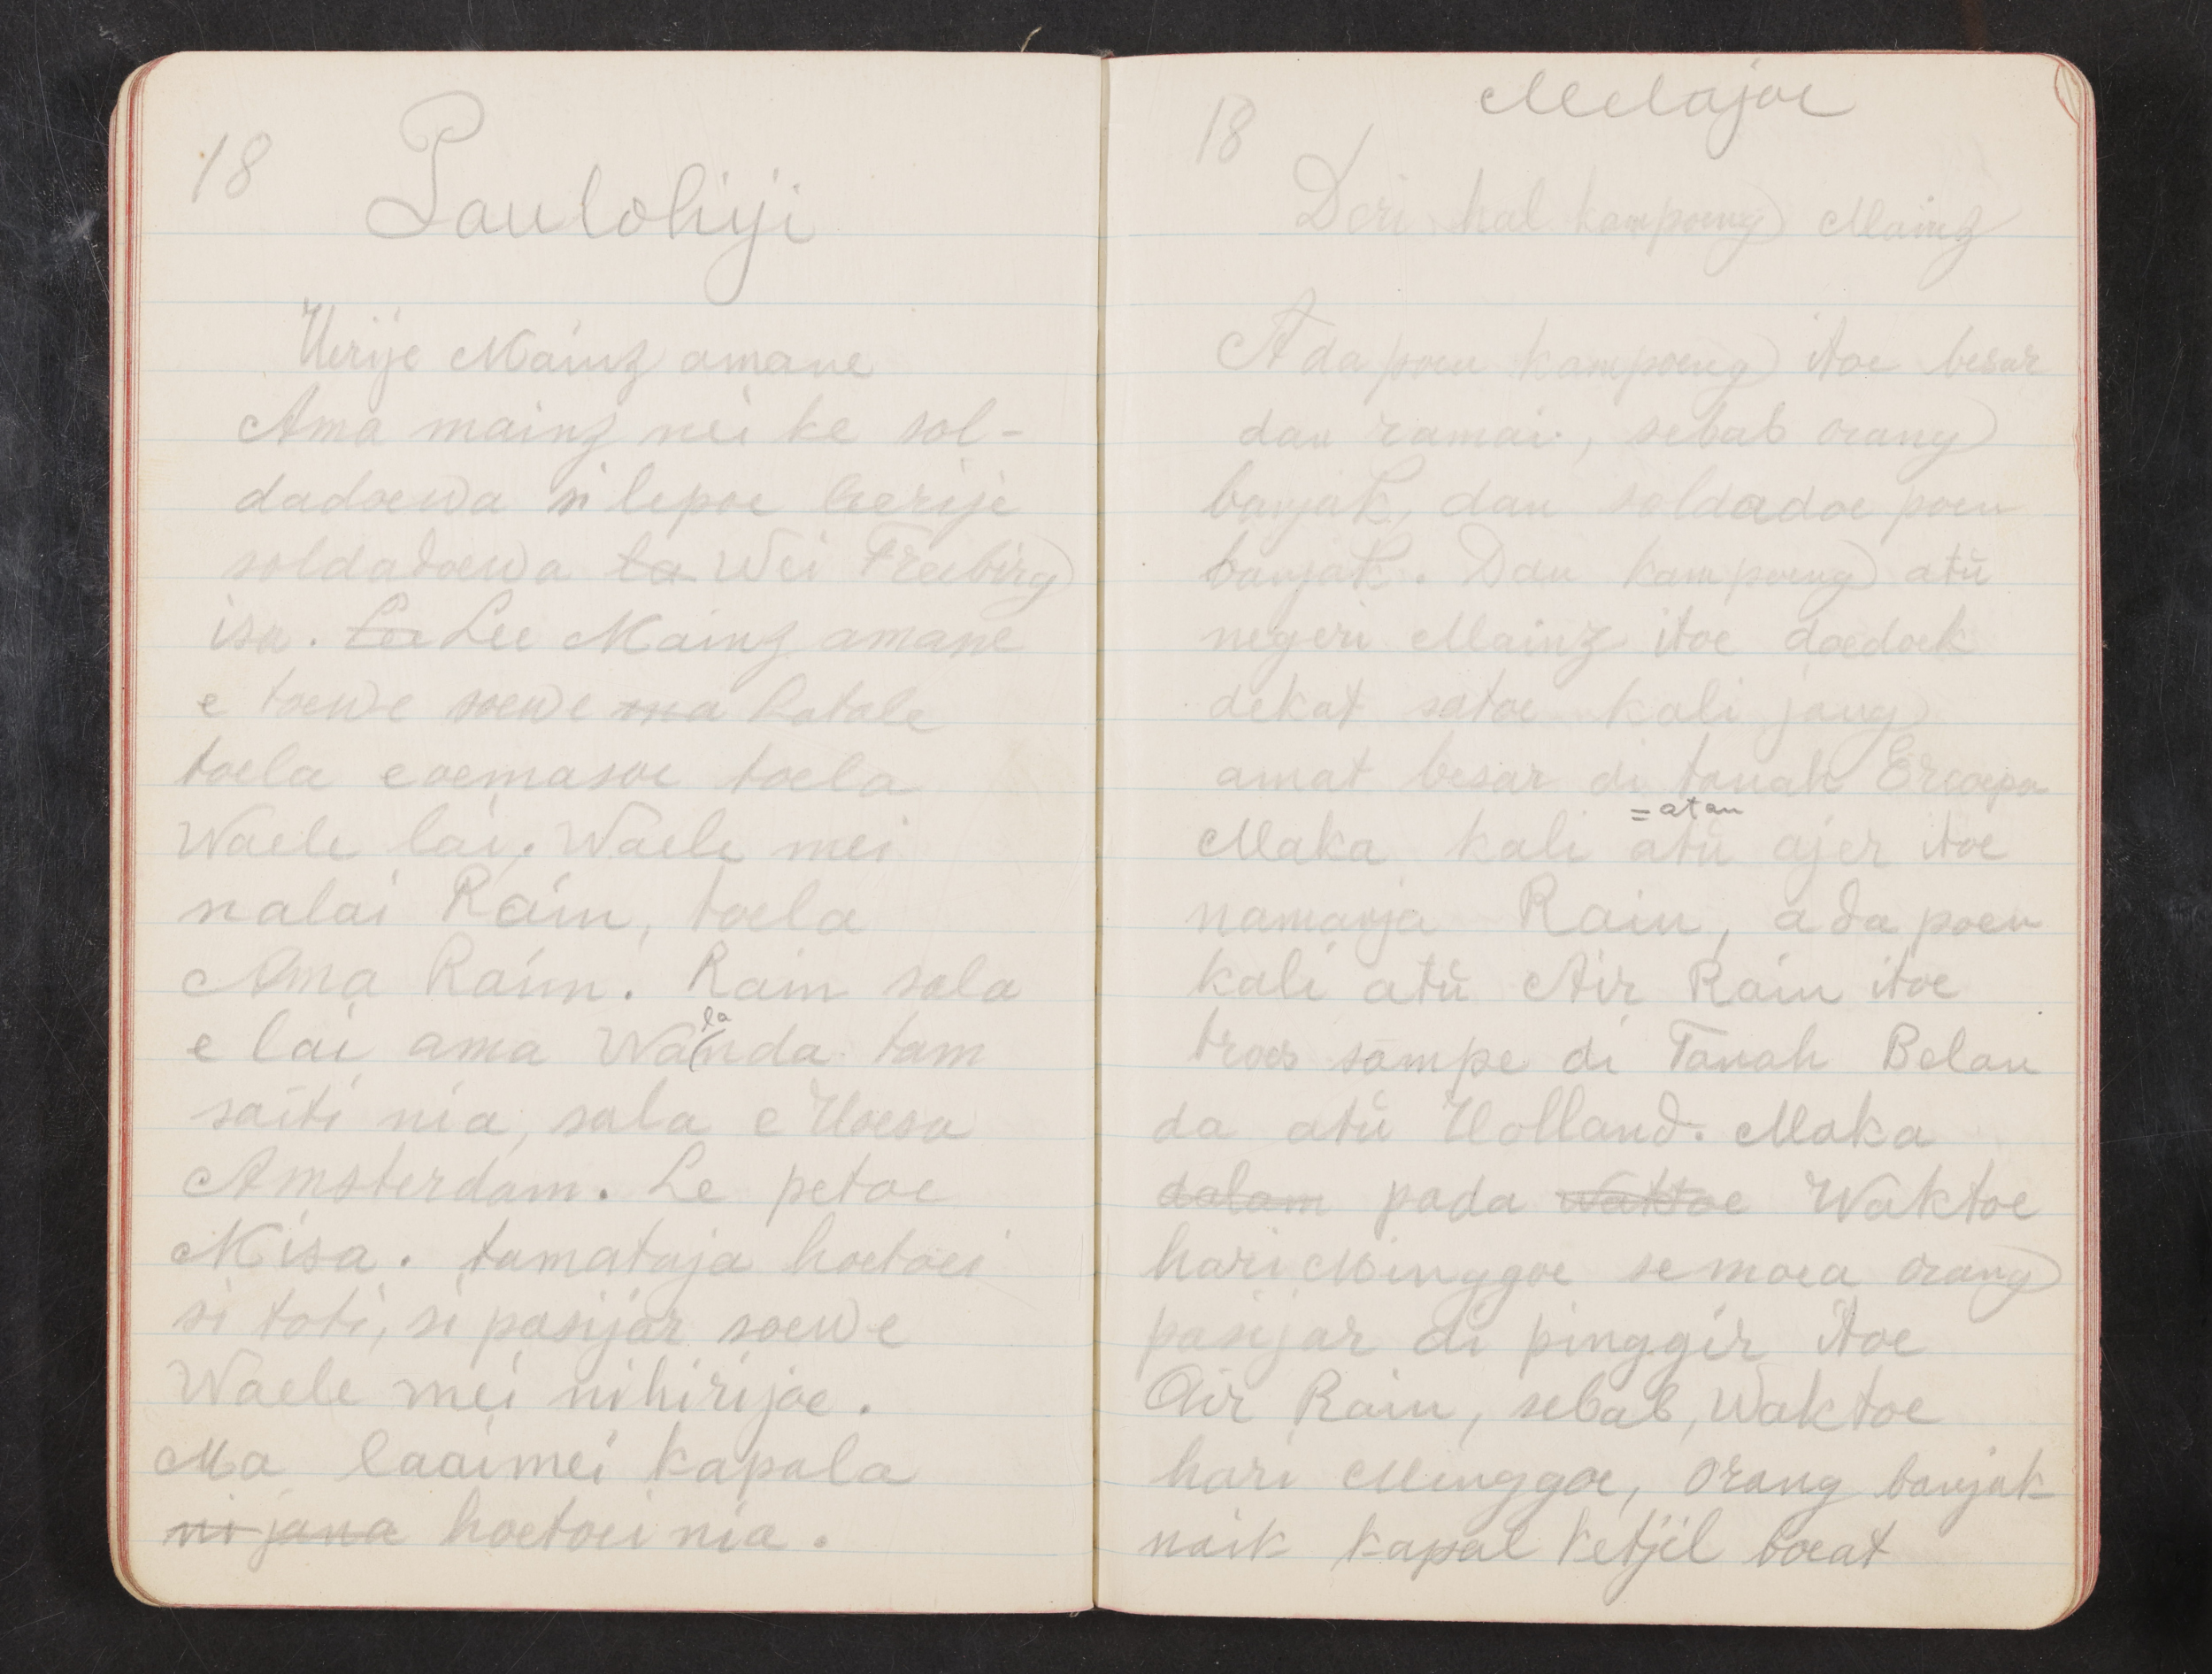 18
Paulohiji
Herije Mainz amane
Ama mainz nei ke sol-
dadoewa si lepoe herije
soldadoewa la Wei Freibirg
isa. Lee Lee Mainz amane
e toewe soewe ma hatale
toela eoemasoe toela
Waele lai. Waele mei
nalai Rain, toela
Ama Rain. Rain sala
la
e lai ama Wanda tam
saiti nia, sala e Hoesa
Amsterdam. Le petoe
Misa. tamataja hoetoei
si toti, si pasijar soewe
Waele mei nihirijoe.
Ma laaimei kapala
ni jana hoetoei nia.
18
Melajoe
Dari hal kampoeng Mainz
Ada poen kampoeng itoe besar
dan ramai, sebab orang
banjak, dan soldadoe poen
banjak. Dan kampoeng atŭ
negeri Mainz itoe doedoek
dekat satoe kali jang
amat besar di tanah Eroepa
= atau
Maka kali atŭ ajer itoe
namanja Rain, ada poen
kali atŭ Air Rain itoe
troes sampe di Tanah Belan
da atŭ Holland. Maka
dalam pada waktoe Waktoe
hari Minggoe semoea orang
pasijar di pinggir itoe
Air Rain, sebab, Waktoe
hari Minggoe, orang banjak
naik kapal ketjil boeat